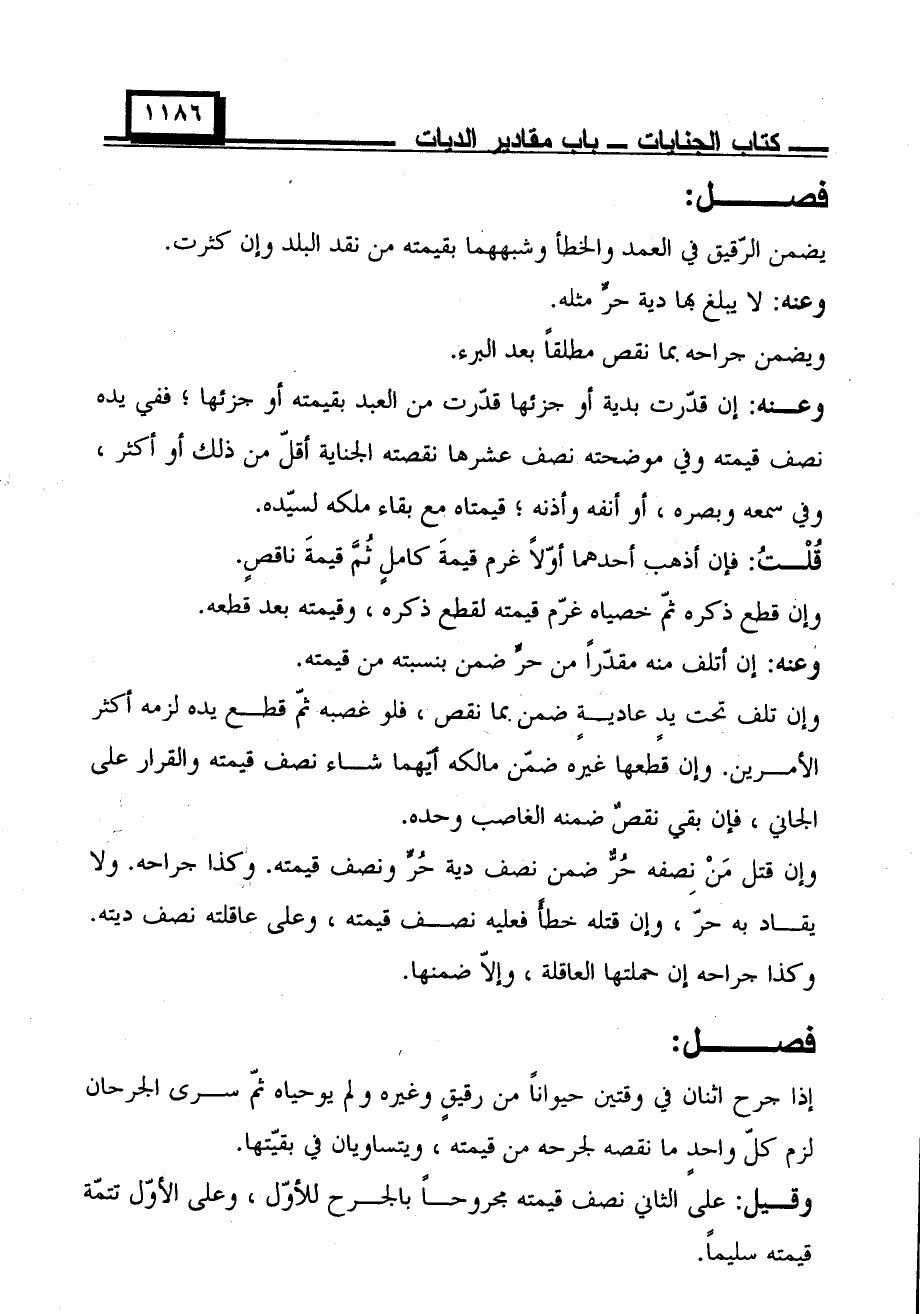 ١١٨٦
كتاب الجنايات – باب مقادير الديات
فصــــل:
يضمن الرّقيق في العمد والخطأ وشبههما بقيمته من نقد البلد وإن كثرت.
وعنه: لا يبلغ بها دية حرٍّ مثله.
ويضمن جراحه بما نقص مطلقاً بعد البرء.
وعـــنه: إن قدّرت بدية أو جزئها قدّرت من العبد بقيمته أو جزئها ؛ ففي يده
نصف قيمته وفي موضحته نصف عشرها نقصته الجناية أقلّ من ذلك أو أكثر ،
وفي سمعه وبصره ، أو أنفه وأذنه ؛ قيمتاه مع بقاء ملكه لسيّده.
قُلْـــتُ: فإن أذهب أحدهما أوّلاً غرم قيمةَ كاملٍ ثُمَّ قيمةَ ناقصٍ.
وإن قطع ذكره ثمّ خصياه غرّم قيمته لقطع ذكره ، وقيمته بعد قطعه.
وعنه: إن أتلف منه مقدّراً من حرٍّ ضمن بنسبته من قيمته.
وإن تلف تحت يدٍ عاديـــةٍ ضمن بما نقص ، فلو غصبه ثمّ قطـــع يده لزمه أكثر
الأمـــرين. وإن قطعها غيره ضمّن مالكه أيّهما شـــاء نصف قيمته والقرار على
الجاني ، فإن بقي نقصٌ ضمنه الغاصب وحده.
وإن قتل مَنْ نِصفه حُرٌّ ضمن نصف دية حُرٍّ ونصف قيمته. وكذا جراحه. ولا
يقـــاد به حرّ ، وإن قتله خطأً فعليه نصـــف قيمته ، وعلى عاقلته نصف ديته.
وكذا جراحه إن حملتها العاقلة ، وإلاّ ضمنها.
فصــــل:
إذا جرح اثنان في وقتين حيواناً من رقيقٍ وغيره ولم يوحياه ثمّ ســـرى الجرحان
لزم كلّ واحدٍ ما نقصه لجرحه من قيمته ، ويتساويان في بقيّتها.
وقـــيل: على الثاني نصف قيمته مجروحـــاً بالجـــرح للأوّل ، وعلى الأوّل تتمّة
قيمته سليماً.